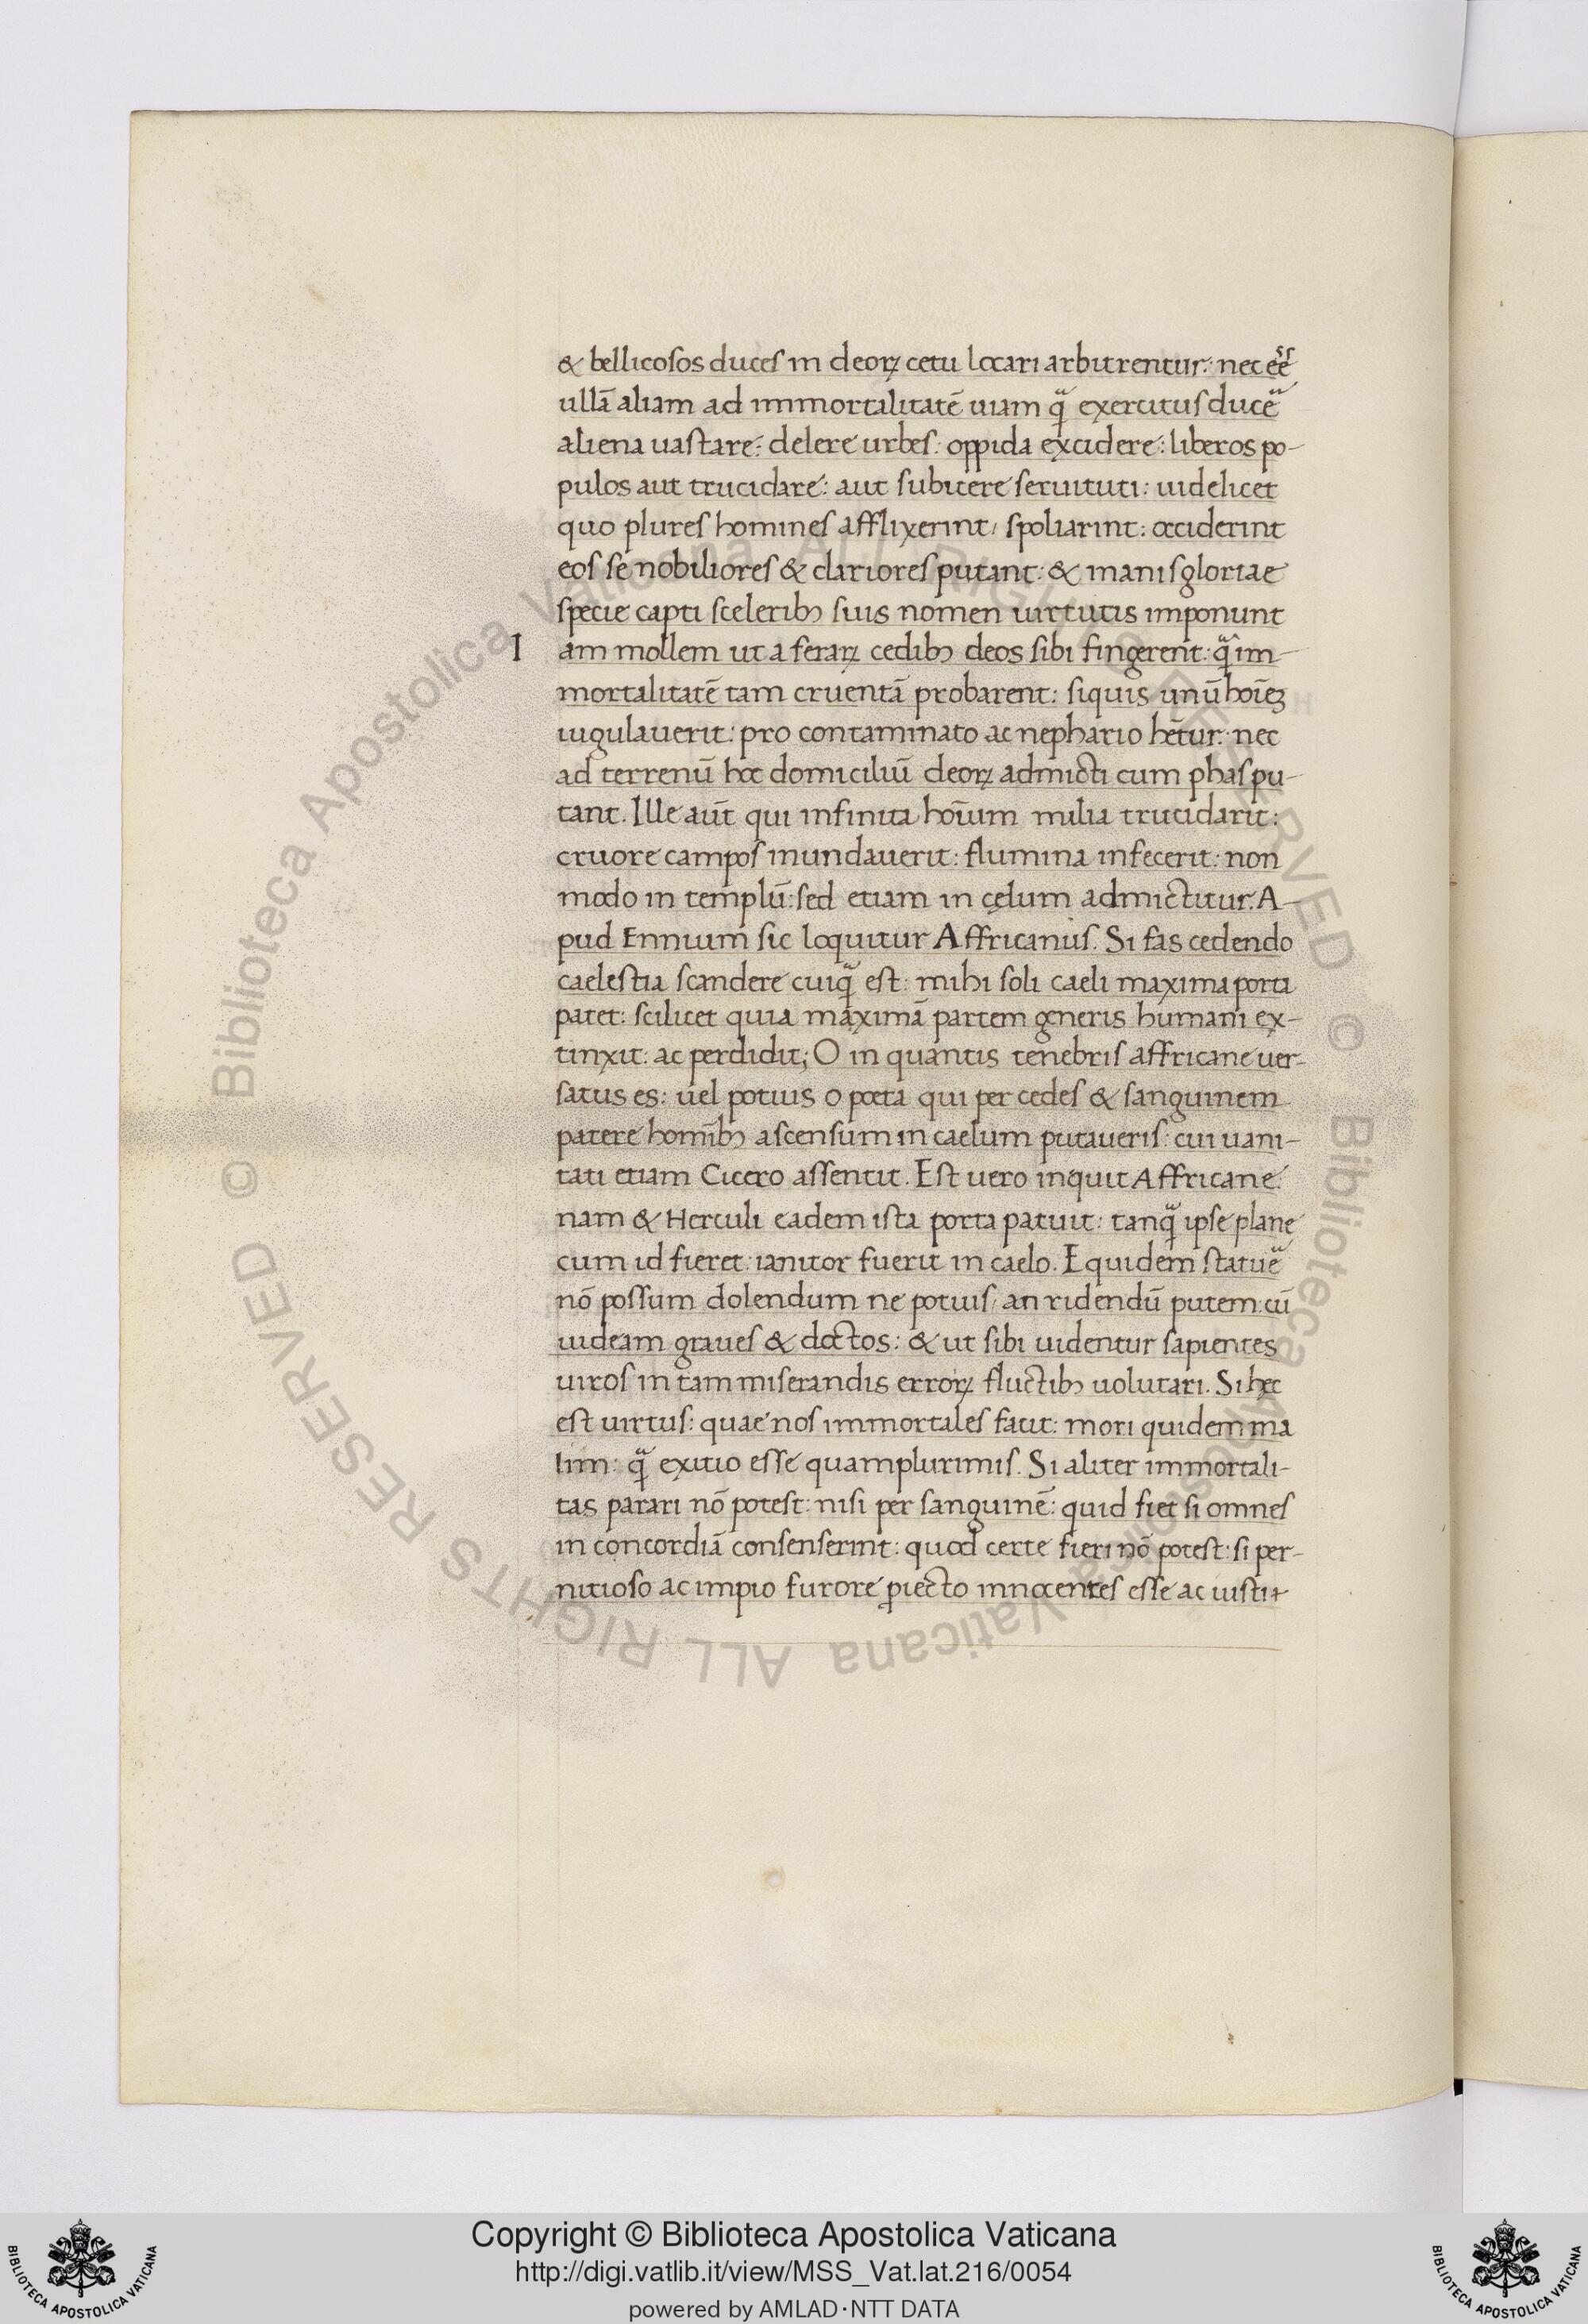 & bellicosos duces in deoꝝ cetu locari arbitrentur: nec eē
ullā aliam ad immortalitatē uiam qᷓ exercitus ducē
aliena uastare: delere urbes: oppida excidere: liberos po-
pulos aut trucidare: aut subicere seruituti: uidelicet
quo plures homines afflixerint, spoliarint: occiderint
eos se nobiliores & clariores putant: & inanis gloriae
specie capti sceleribꝫ suis nomen uirtutis imponunt
I am mollem ut a feraꝝ cedibꝫ deos sibi fingerent: qᷓ im-
mortalitatē tam cruentā probarent: siquis unū hoīeꝫ
iugulauerit: pro contaminato ac nephario hētur: nec
ad terrenū hoc domiciliū deoꝝ admicti cum phas pu-
tant. Ille aūt qui infinita hoīum milia trucidarit:
cruore campos inundauerit: flumina infecerit: non
modo in templū: sed etiam in cęlum admictitur. A-
pud Ennium sic loquitur Affricanus. Si fas cedendo
caelestia scandere cuiqᷓ est: mihi soli caeli maxima porta
patet: scilicet quia maximā partem generis humani ex-
tinxit: ac perdidit; O in quantis tenebris affricane uer-
satus es: uel potius o poeta qui per cedes & sanguinem
patere homībꝫ ascensum in caelum putaueris: cui uani-
tati etiam Cicero assentit. Est uero inquit Affricane:
nam & Herculi eadem ista porta patuit: tanqᷓ ipse plane
cum id fieret: ianitor fuerit in caelo. Equidem statuē
nō possum dolendum ne potius, an ridendū putem: cū
uideam graues & doctos: & ut sibi uidentur sapientes
uiros in tam miserandis erroꝝ fluctibꝫ uolutari. Si hęc
est uirtus: quae nos immortales facit: mori quidem ma
lim: qᷓ exitio esse quamplurimis. Si aliter immortali-
tas parari nō potest: nisi per sanguinē: quid fiet si omnes
in concordiā consenserint: quod certe fieri nō potest: si per-
nitioso ac impio furore ꝓiecto innocentes esse ac iusti
Copyright © Biblioteca Apostolica Vaticana
http://digi.vatlib.it/view/MSS_Vat.lat.216/0054
powered by AMLAD·NTT DATA
BIBLIOTECA APOSTOLICA VATICANA
BIBLIOTECA APOSTOLICA VATICANA
© Biblioteca Apostolica Vaticana ALL RIGHTS RESERVED © Biblioteca Apostolica Vaticana ALL RIGHTS RESERVED